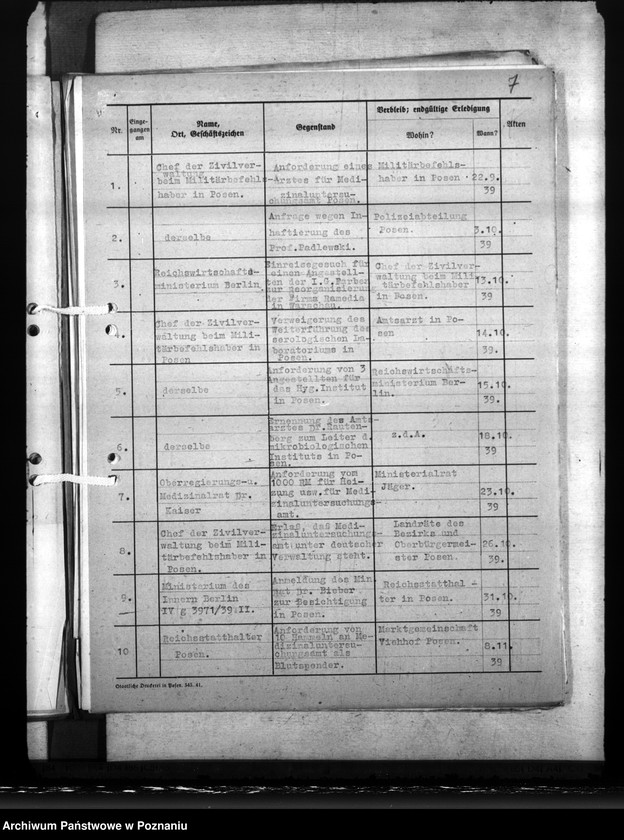 7
Nr.
Einge-
gangen
am
Name,
Ort, Geschäftszeichen
Gegenstand
Verbleib; endgültige Erledigung
Wohin?
Wann?
Akten
1.
Chef der Zivilver-
waltung
beim Militärbefehls-
haber in Posen.
Anforderung eines
Arztes für Medi-
zinalunter su-
chungsamt Posen.
Militärbefehls-
haber in Posen
22.9.
39
2.
derselbe
Anfrage wegen In-
haftierung des
Prof.Padlewski.
Polizeiabteilung
Posen.
3.10.
39
3.
Reichswirtschafts-
ministerium Berlin
Einreisegesuch für
einen Angestell-
ten der I.G.Farben
zur Reorganisierung
der Firma Remedia
in Warschau.
Chef der Zivilver-
waltung beim Mili-
tärbefehlshaber
in Posen.
13.10.
39
4.
Chef der Zivilver-
waltung beim Mili-
tärbefehlshaber in
Posen
Verweigerung des
Weiterführung des
serologischen La-
boratoriums in
Posen.
Amtsarzt in Po-
sen
14.10.
39.
5.
derselbe
Anforderung von 3
Angestellten für
das Hyg.Institut
in Posen.
Reichswirtschafts-
ministerium Ber-
lin.
15.10.
39.
6.
derselbe
Ernennung des Amts-
arztes Dr.Rauten-
berg zum Leiter d.
mikrobiologischen
Instituts in Po-
sen.
z.d.A.
18.10.
39
7.
Oberregierungs-u.
Medizinalrat Dr.
Kaiser
Anforderung vom
1000 RM für Hei-
zung usw.für Medi-
zinaluntersuchungs-
amt.
Ministerialrat
Jäger.
23.10.
39
8.
Chef der Zivilver-
waltung beim Mili-
tärbefehlshaber in
Posen.
Erlaß, daß Medi-
zinaluntersuchungs-
amt unter deutscher
Verwaltung steht.
Landräte des
Bezirks und
Oberbürgermei-
ster Posen.
26.10.
39.
9.
Ministerium des
Innern Berlin
IV g 3971/39 II.
Anmeldung des Min.
Rat Dr. Bieber
zur Besichtigung
in Posen.
Reichsstatthal-
ter in Posen.
31.10.
39
10
Reichsstatthalter
Posen.
Anforderung von
10 Hammeln an Me-
dizinaluntersu-
chungsamt als
Blutspender.
Marktgemeinschaft
Viehhof Posen.
8.11.
39
Staatliche Druckerei in Posen. 342. 41.
Archiwum Państwowe w Poznaniu